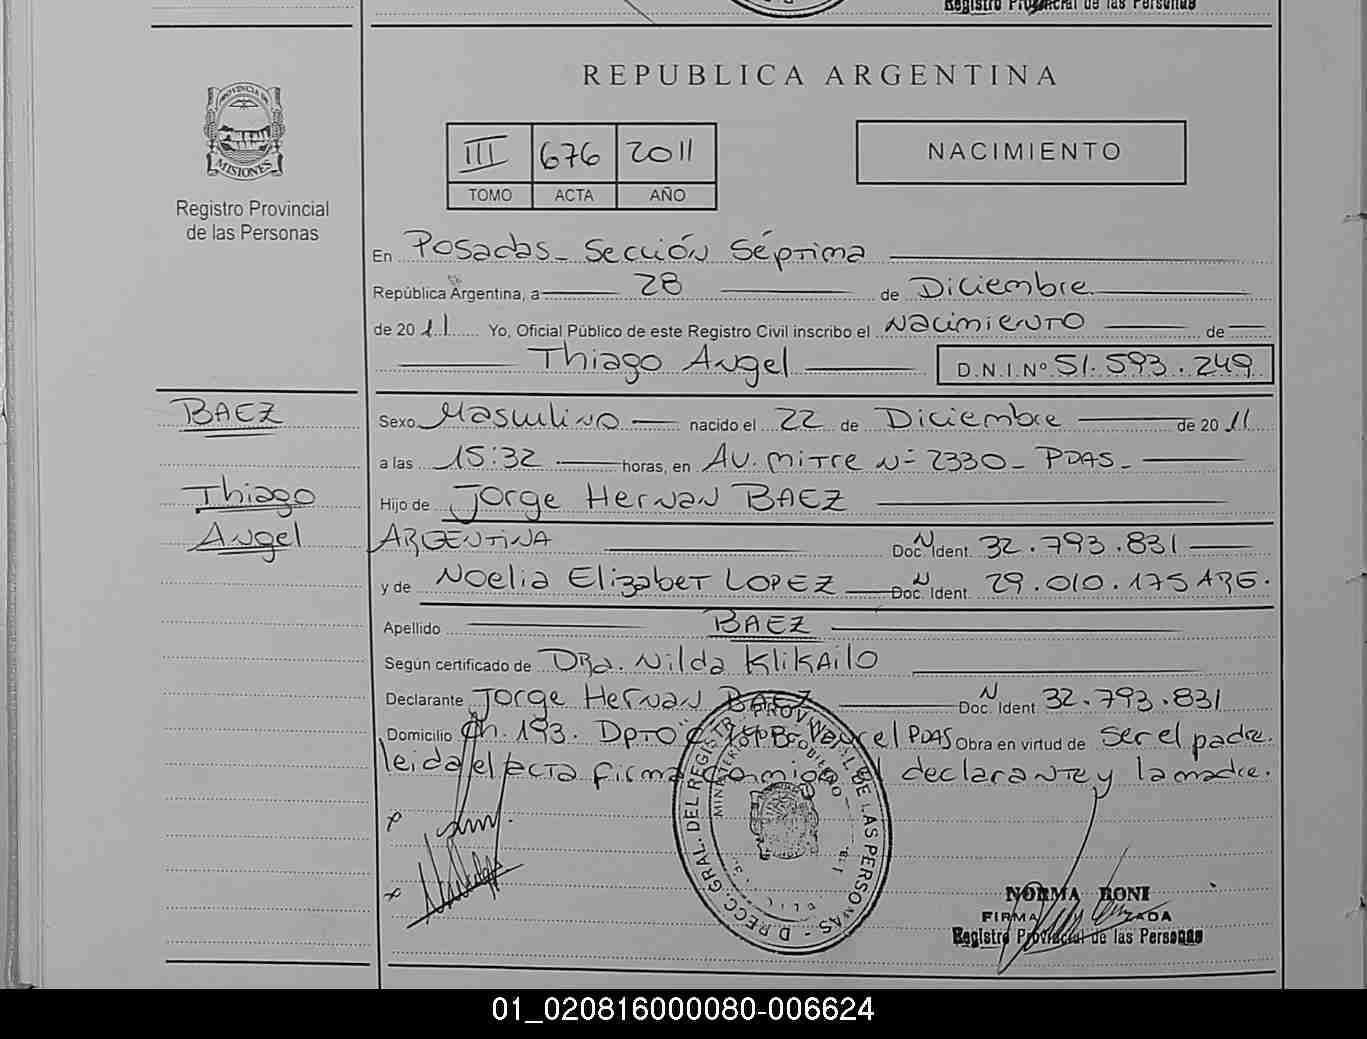 Registro Provincial de las Personas
REPUBLICA ARGENTINA
PROVINCIA DE
MISIONES
Registro Provincial
de las Personas
III 676 2011
TOMO ACTA AÑO
NACIMIENTO
En Posadas - Sección Séptima
República Argentina, a 28 de Diciembre
de 2011 Yo, Oficial Público de este Registro Civil inscribo el Nacimiento de
Thiago Angel D.N.I.Nº 51.593.249
BAEZ
Thiago
Angel
Sexo Masculino nacido el 22 de Diciembre de 2011
a las 15:32 horas, en Av. Mitre Nº 2330 - PDAS -
Hijo de Jorge Hernan BAEZ
ARGENTINA Doc. N Ident. 32.793.831
y de Noelia Elizabet LOPEZ Doc. N Ident. 29.010.175 ARG.
Apellido BAEZ
Segun certificado de Dra. Nilda Klikailo
Declarante Jorge Hernan BAEZ Doc. N Ident. 32.793.831
Domicilio Ch. 193. Dpto PDAS Obra en virtud de ser el padre.
leida el acta firma conmigo el declarante y la madre.
DRECC. GRAL. DEL REGISTRO PROVINCIAL DE LAS PERSONAS
MINISTERIO GOBIERNO
NORMA BONI
FIRMA AUTORIZADA
Registro Provincial de las Personas
01_020816000080-006624